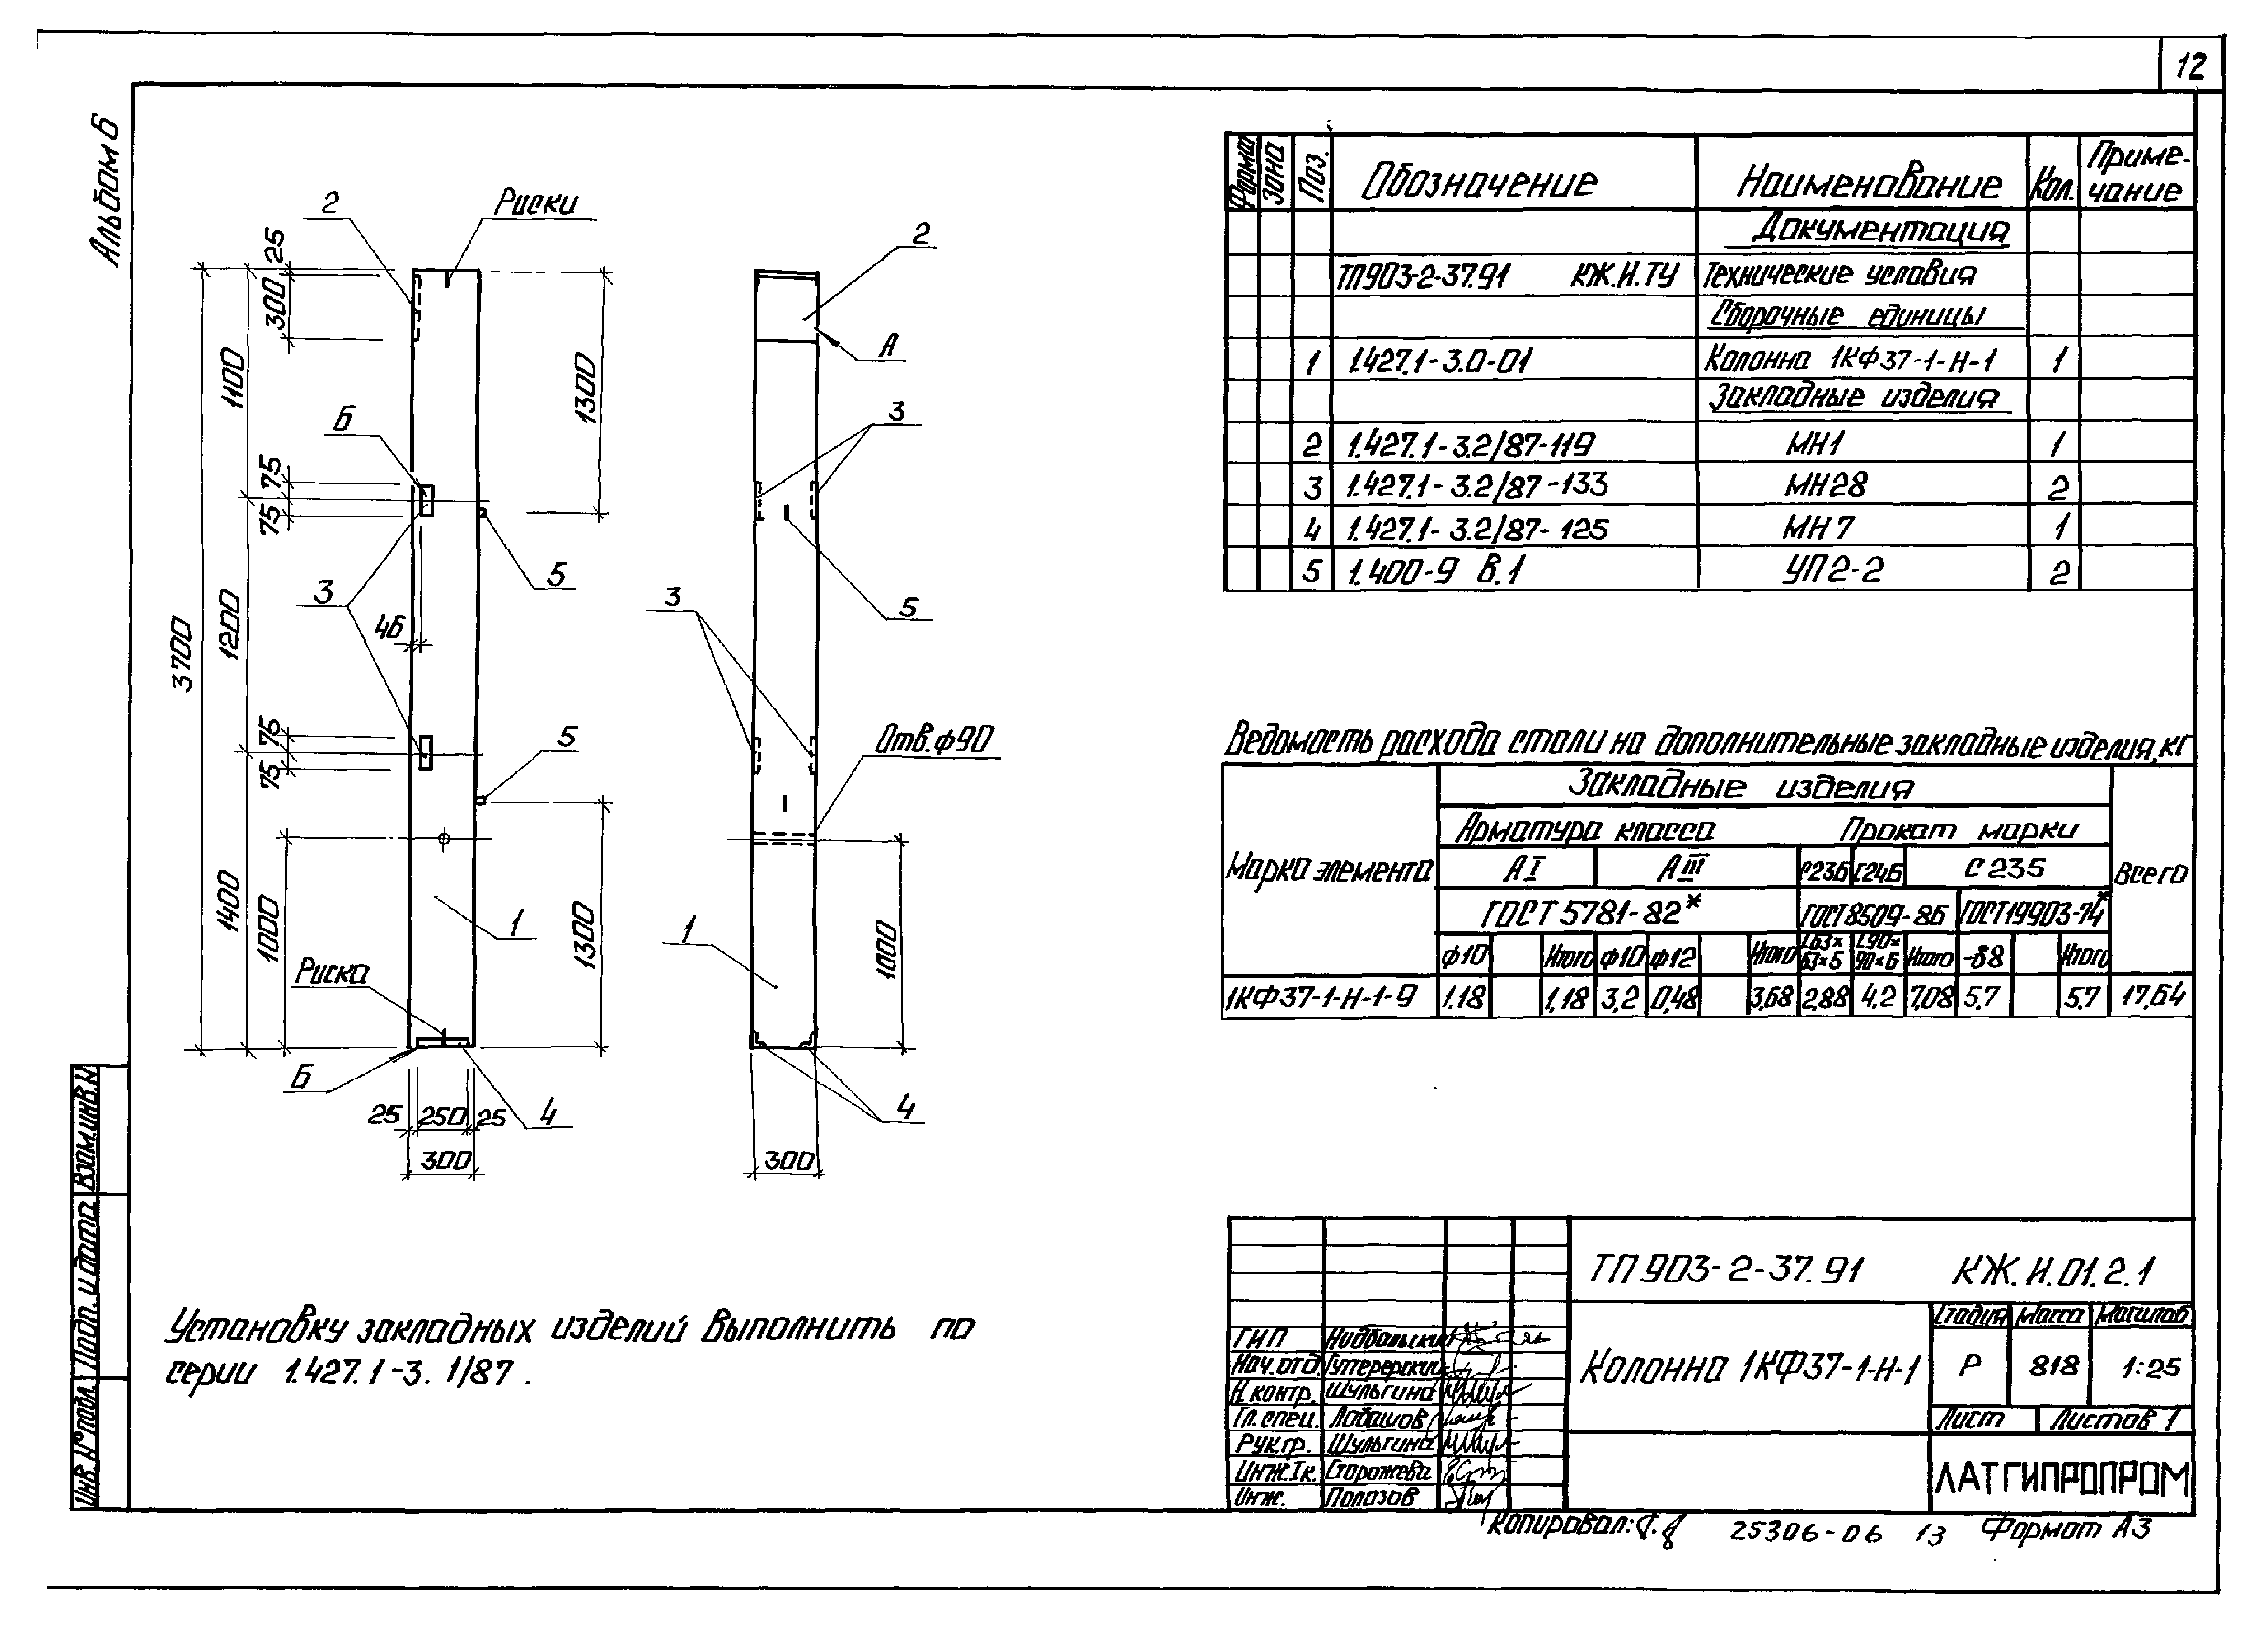 12
Альбом 6
2
Риски
25
300
1100
3700
1300
Б
75
75
3
5
46
1200
75
75
5
1400
1000
1
1300
Риска
Б
4
25 250 25
300
2
А
3
5
3
Отв. ф90
1
1000
4
300
Формат Зона Поз. Обозначение Наименование Кол. Приме-
чание
Документация
ТП903-2-37.91 КЖ.И.ТУ Технические условия
Сборочные единицы
1 1.427.1-3.0-01 Колонна 1КФ37-1-Н-1 1
Закладные изделия
2 1.427.1-3.2/87-119 МН1 1
3 1.427.1-3.2/87-133 МН28 2
4 1.427.1-3.2/87-125 МН7 1
5 1.400-9 В.1 УП2-2 2
Ведомость расхода стали на дополнительные закладные изделия, кг
Марка элемента Закладные изделия Всего
Арматура класса Прокат марки
АI АIII С235 С245 С235
ГОСТ 5781-82* ГОСТ 8509-86 ГОСТ19903-74*
ф10 Итого ф10 ф12 Итого L63×63×5 L90×90×6 Итого -δ8 Итого
1КФ37-1-Н-1-9 1.18 1,18 3,2 0,48 3,68 2,88 4.2 7,08 5.7 5.7 17,64
Установку закладных изделий выполнить по
серии 1.427.1-3. 1/87.
ТП 903-2-37.91 КЖ.И.01.2.1
Колонна 1КФ37-1-Н-1
Стадия Масса Масштаб
Р 818 1:25
Лист Листов 1
ЛАТГИПРОПРОМ
ГИП
Нач.отд.
Н.контр. Шульгина
Гл.спец. Лабашов
Рук.гр. Шульгина
Инж.Iк. Сторожева
Инж. Полозов
Инв. № подл. Подп. и дата Взам.инв.№
Копировал:
25306-06 13 Формат А3